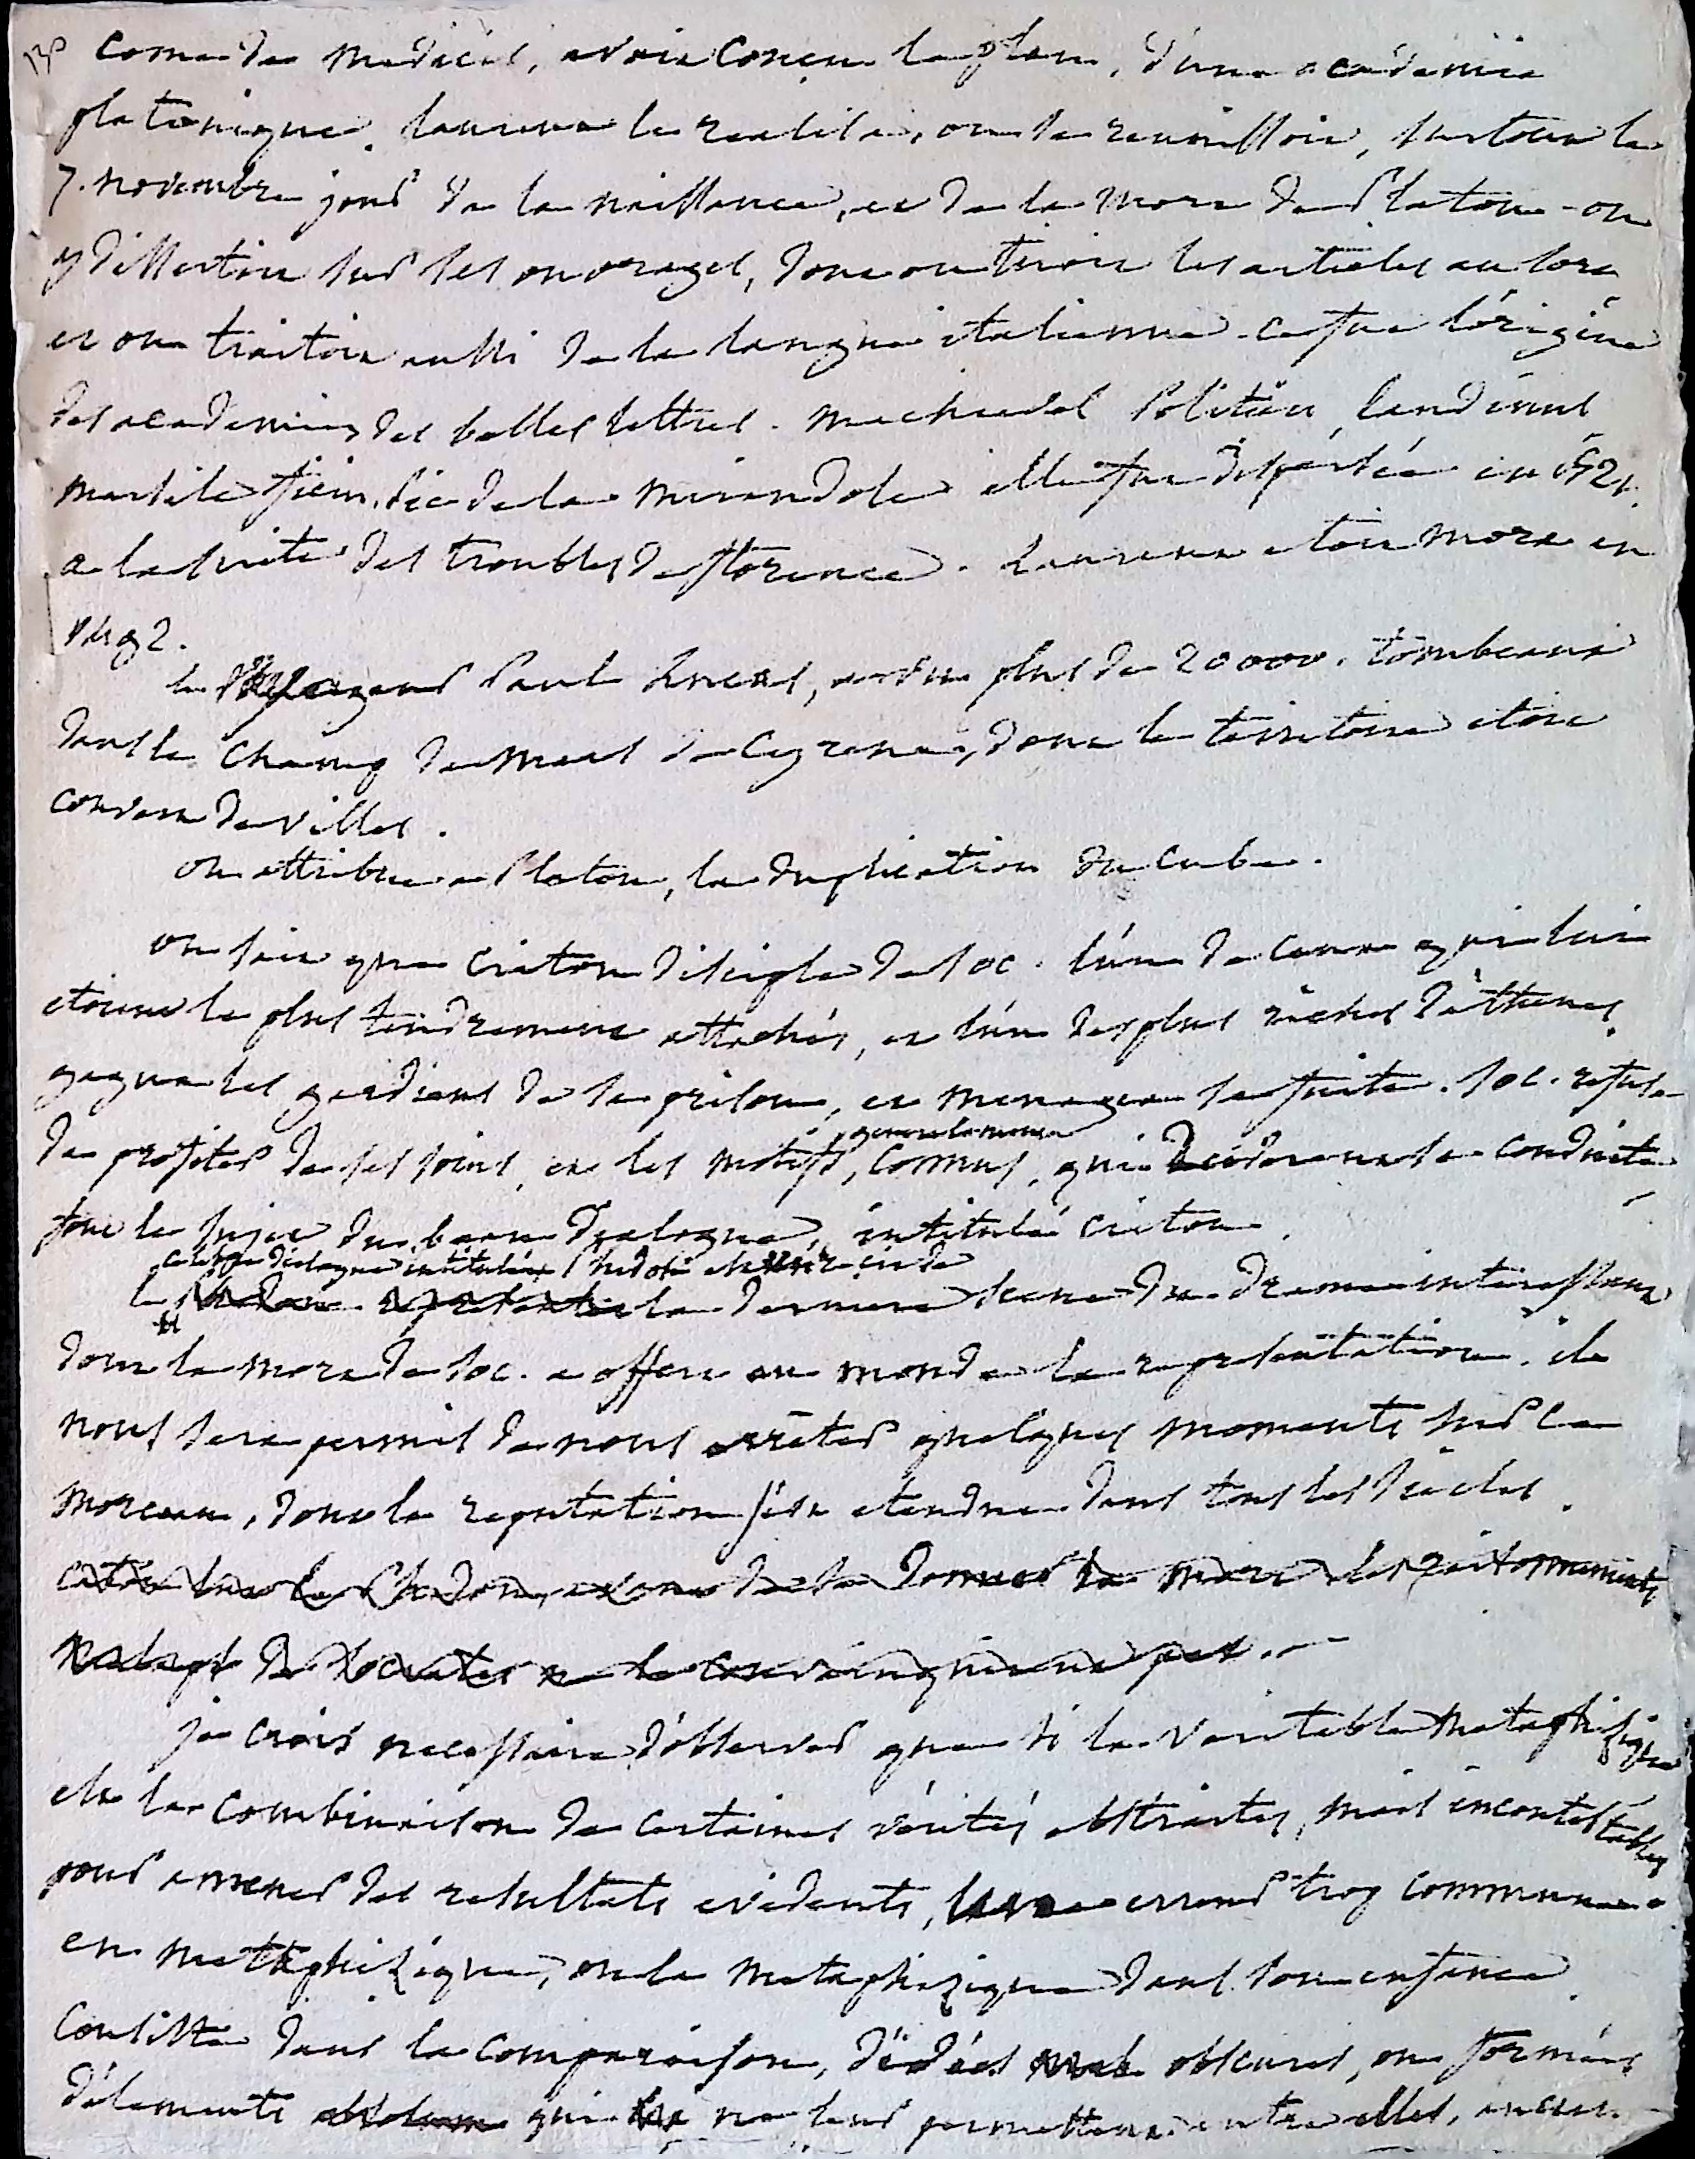 Come de Medicis, avoit conçu le plan, d'une académie
platonique. Laurent le realisa, on se reunissoit, surtout le
7. novembre jour de la naissance, et de la mort de Platon - on
y dissertoit sur ses ouvrages, dont on tiroit les articles au sort
et on traitoit aussi de la langue italienne. ce fut l'origine
des academies des belles lettres. Machiavel Politien, Landinus
Marsile ficin, Pic de la Mirandole elle fut dispersée en 1521.
a la suite des troubles de florence. Laurent etoit mort en
1492.
le voyageur Paul Lucas, a vu plus de 20000. tombeaux
dans le champ de mars de Cyrene, dont le territoire etoit
couvert de villes.
on attribue a Platon, la duplication du cube.
on sait que Criton disciple de Soc. l'un de ceux qui lui
etoient le plus tendrement attachés, et l'un des plus riches d'athenes
gagna les gardiens de sa prison, et menagea sa fuite. Soc. refusa
de profiter de ses soins, et les motifs, generalement connus, qui deciderent sa conduite
font le sujet du beau dialogue, intitulé Criton.
celebre dialogue intitulé Phedon
le la derniere scene du drame interessant
dont la mort de Soc. a offert au monde la representation. il
nous sera permis de nous arrêter quelques moments sur ce
morceau, dont la reputation s'est etendue dans tous les siecles.
Caton lut le Phedon, avant de se donner la mort les raisonnements
de Socrates ne le convainquirent pas.
je crois necessaire d'observer que si la veritable metaphisique
est la combinaison de certaines vérités abstraites, mais incontestables
pour amener des resultats evidents, une erreur trop commune
en metaphisique, ou la metaphizique dans son enfance
consiste dans la comparaison, d'idées obscures, ou formées
d'elements qui ne leur permettent entre elles, aucun